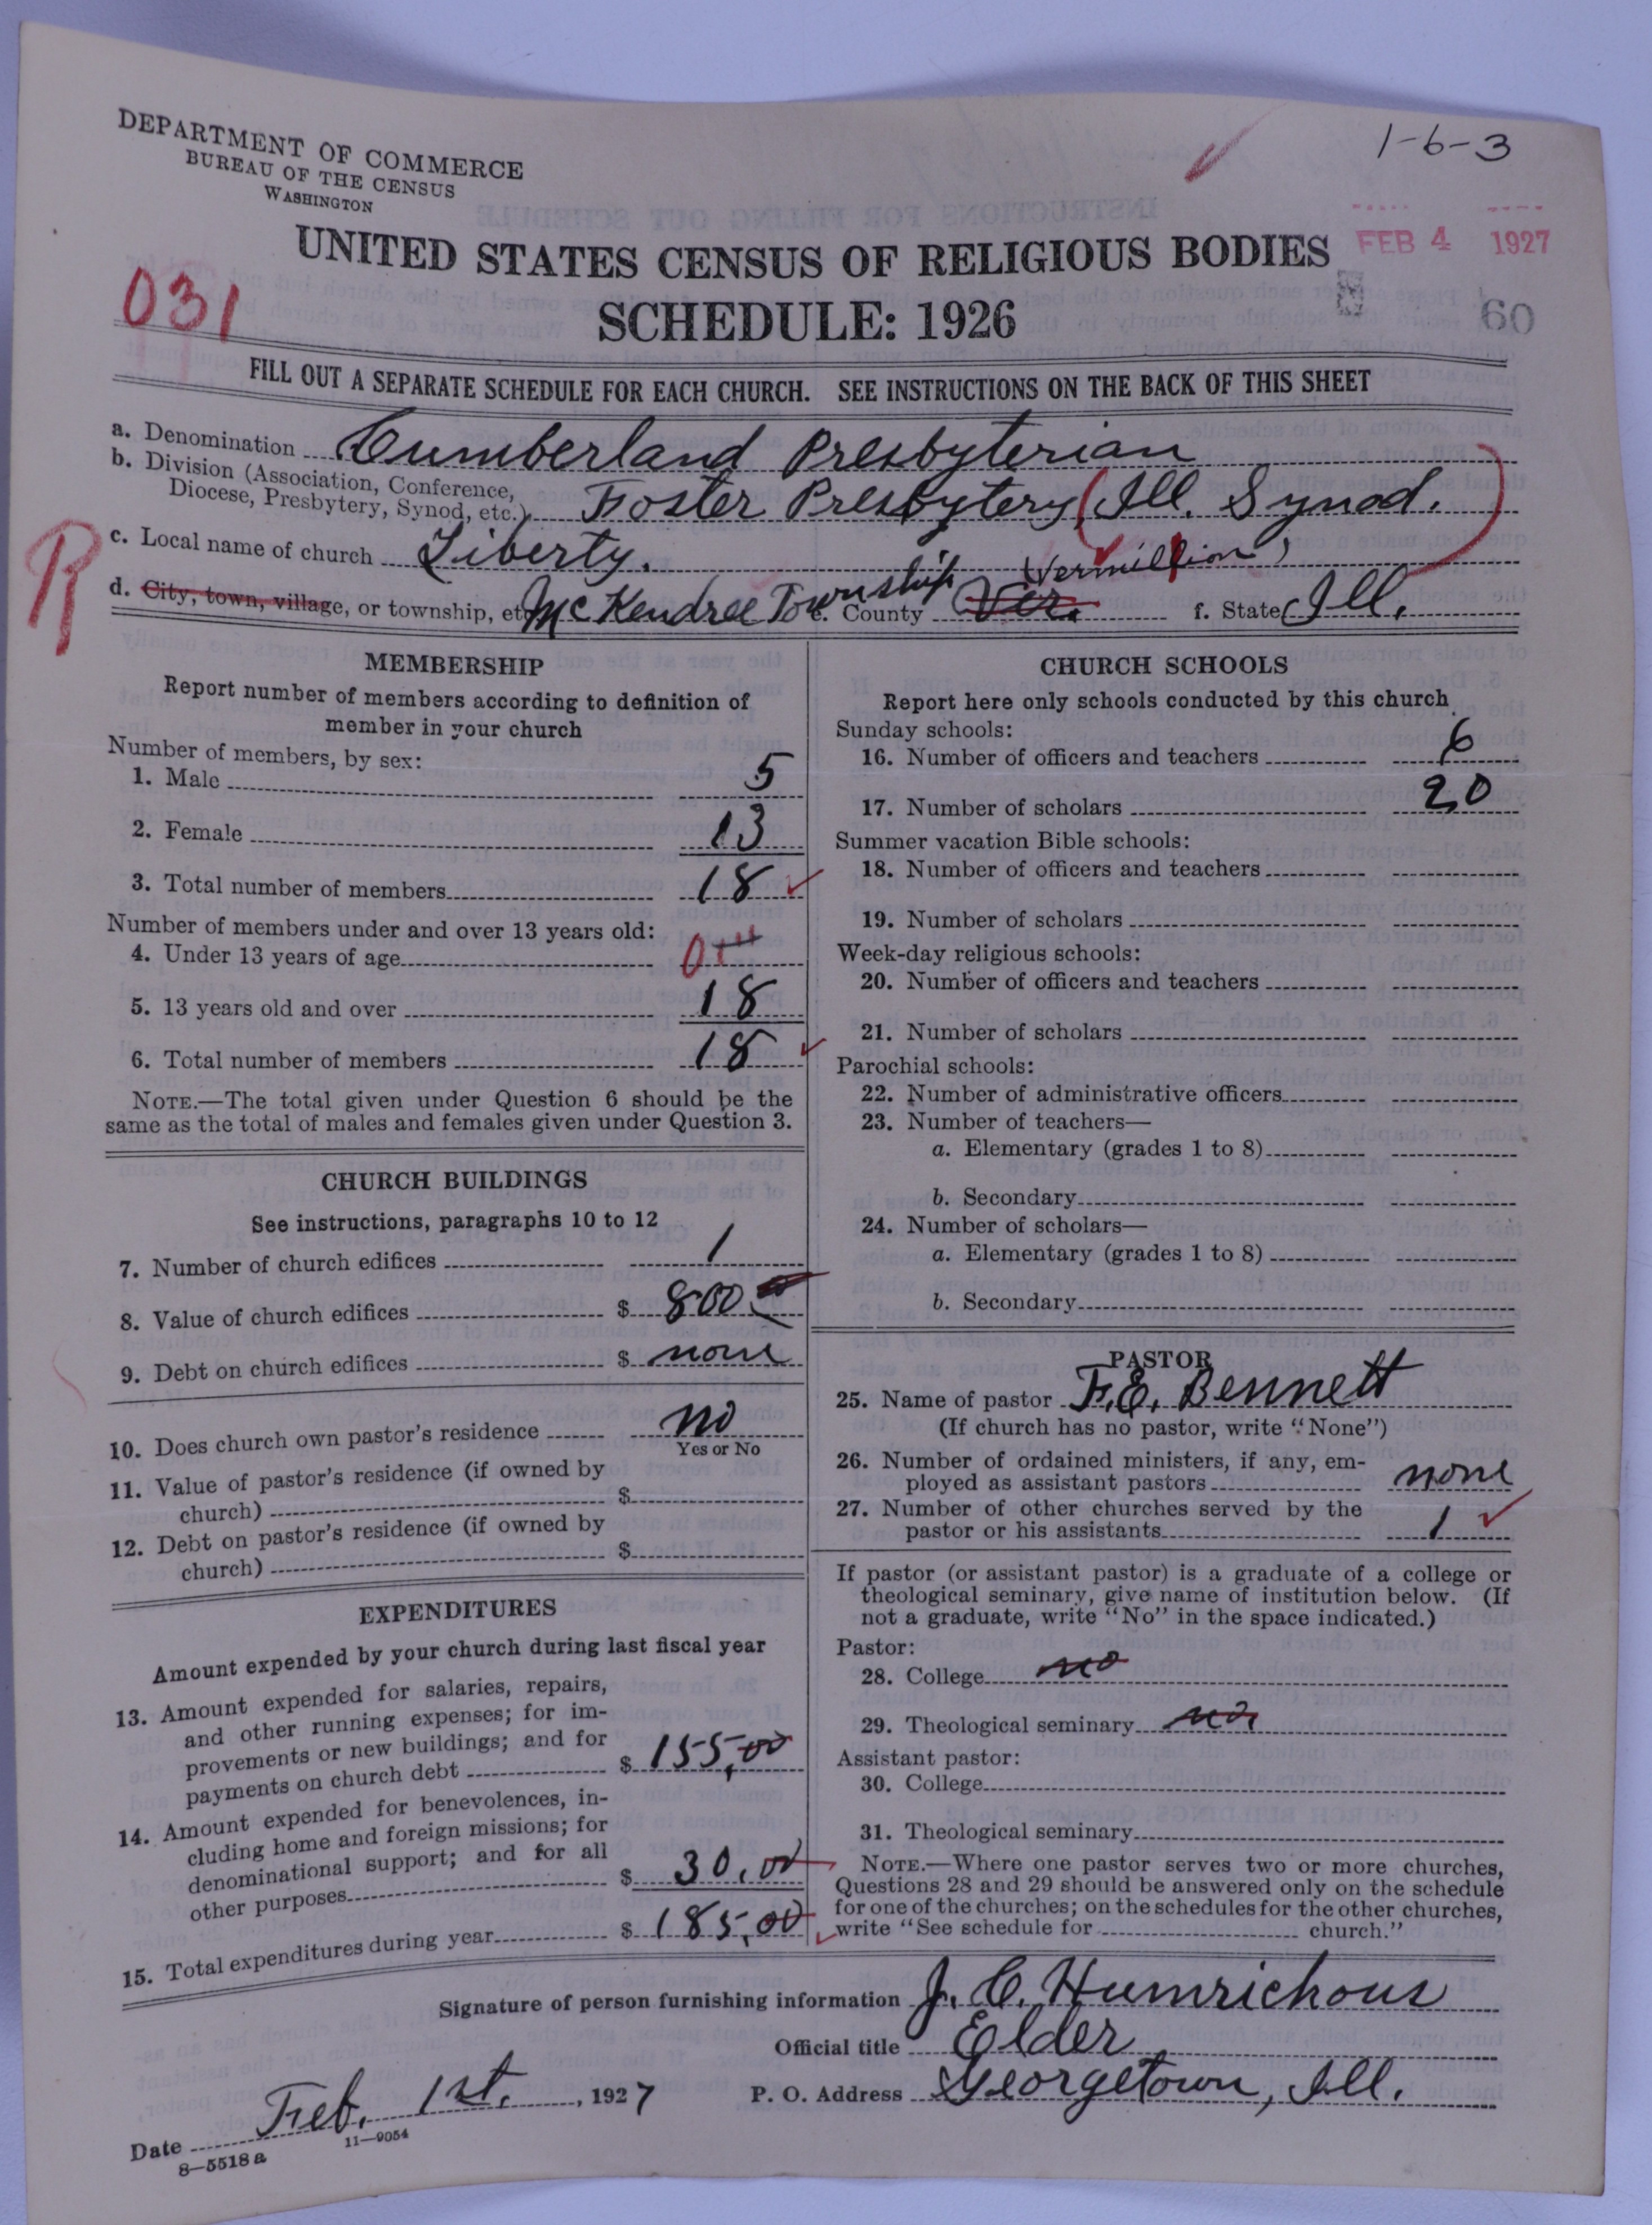 DEPARTMENT OF COMMERCE
BUREAU OF THE CENSUS
WASHINGTON
1-6-3
UNITED STATES CENSUS OF RELIGIOUS BODIES
FEB 4 1927
031
SCHEDULE: 1926
60
FILL OUT A SEPARATE SCHEDULE FOR EACH CHURCH. SEE INSTRUCTIONS ON THE BACK OF THIS SHEET
a. Denomination Cumberland Presbyterian
b. Division (Association, Conference,
Diocese, Presbytery, Synod, etc.) Foster Presbytery (Ill. Synod.)
R
c. Local name of church Liberty.
(Vermillion)
d. City, town, village, or township, etc. McKendree Township e. County Ver. f. State Ill.
MEMBERSHIP
Report number of members according to definition of
member in your church
Number of members, by sex:
1. Male 5
2. Female 13
3. Total number of members 18
Number of members under and over 13 years old:
4. Under 13 years of age 0
5. 13 years old and over 18
6. Total number of members 18
NOTE.—The total given under Question 6 should be the
same as the total of males and females given under Question 3.
CHURCH BUILDINGS
See instructions, paragraphs 10 to 12
7. Number of church edifices 1
8. Value of church edifices $ 800
9. Debt on church edifices $ none
10. Does church own pastor's residence no
Yes or No
11. Value of pastor's residence (if owned by
church) $
12. Debt on pastor's residence (if owned by
church) $
EXPENDITURES
Amount expended by your church during last fiscal year
13. Amount expended for salaries, repairs,
and other running expenses; for im-
provements or new buildings; and for
payments on church debt $ 155,00
14. Amount expended for benevolences, in-
cluding home and foreign missions; for
denominational support; and for all
other purposes $ 30.00
15. Total expenditures during year $ 185,00
CHURCH SCHOOLS
Report here only schools conducted by this church
Sunday schools:
16. Number of officers and teachers 6
17. Number of scholars 20
Summer vacation Bible schools:
18. Number of officers and teachers
19. Number of scholars
Week-day religious schools:
20. Number of officers and teachers
21. Number of scholars
Parochial schools:
22. Number of administrative officers
23. Number of teachers—
a. Elementary (grades 1 to 8)
b. Secondary
24. Number of scholars—
a. Elementary (grades 1 to 8)
b. Secondary
PASTOR
25. Name of pastor F.E. Bennett
(If church has no pastor, write "None")
26. Number of ordained ministers, if any, em-
ployed as assistant pastors none
27. Number of other churches served by the
pastor or his assistants 1
If pastor (or assistant pastor) is a graduate of a college or
theological seminary, give name of institution below. (If
not a graduate, write "No" in the space indicated.)
Pastor:
28. College no
29. Theological seminary no
Assistant pastor:
30. College
31. Theological seminary
NOTE.—Where one pastor serves two or more churches,
Questions 28 and 29 should be answered only on the schedule
for one of the churches; on the schedules for the other churches,
write "See schedule for church."
Signature of person furnishing information J. C. Humrichous
Official title Elder
Date Feb. 1st., 1927 P. O. Address Georgetown, Ill.
8—5518 a 11—9054